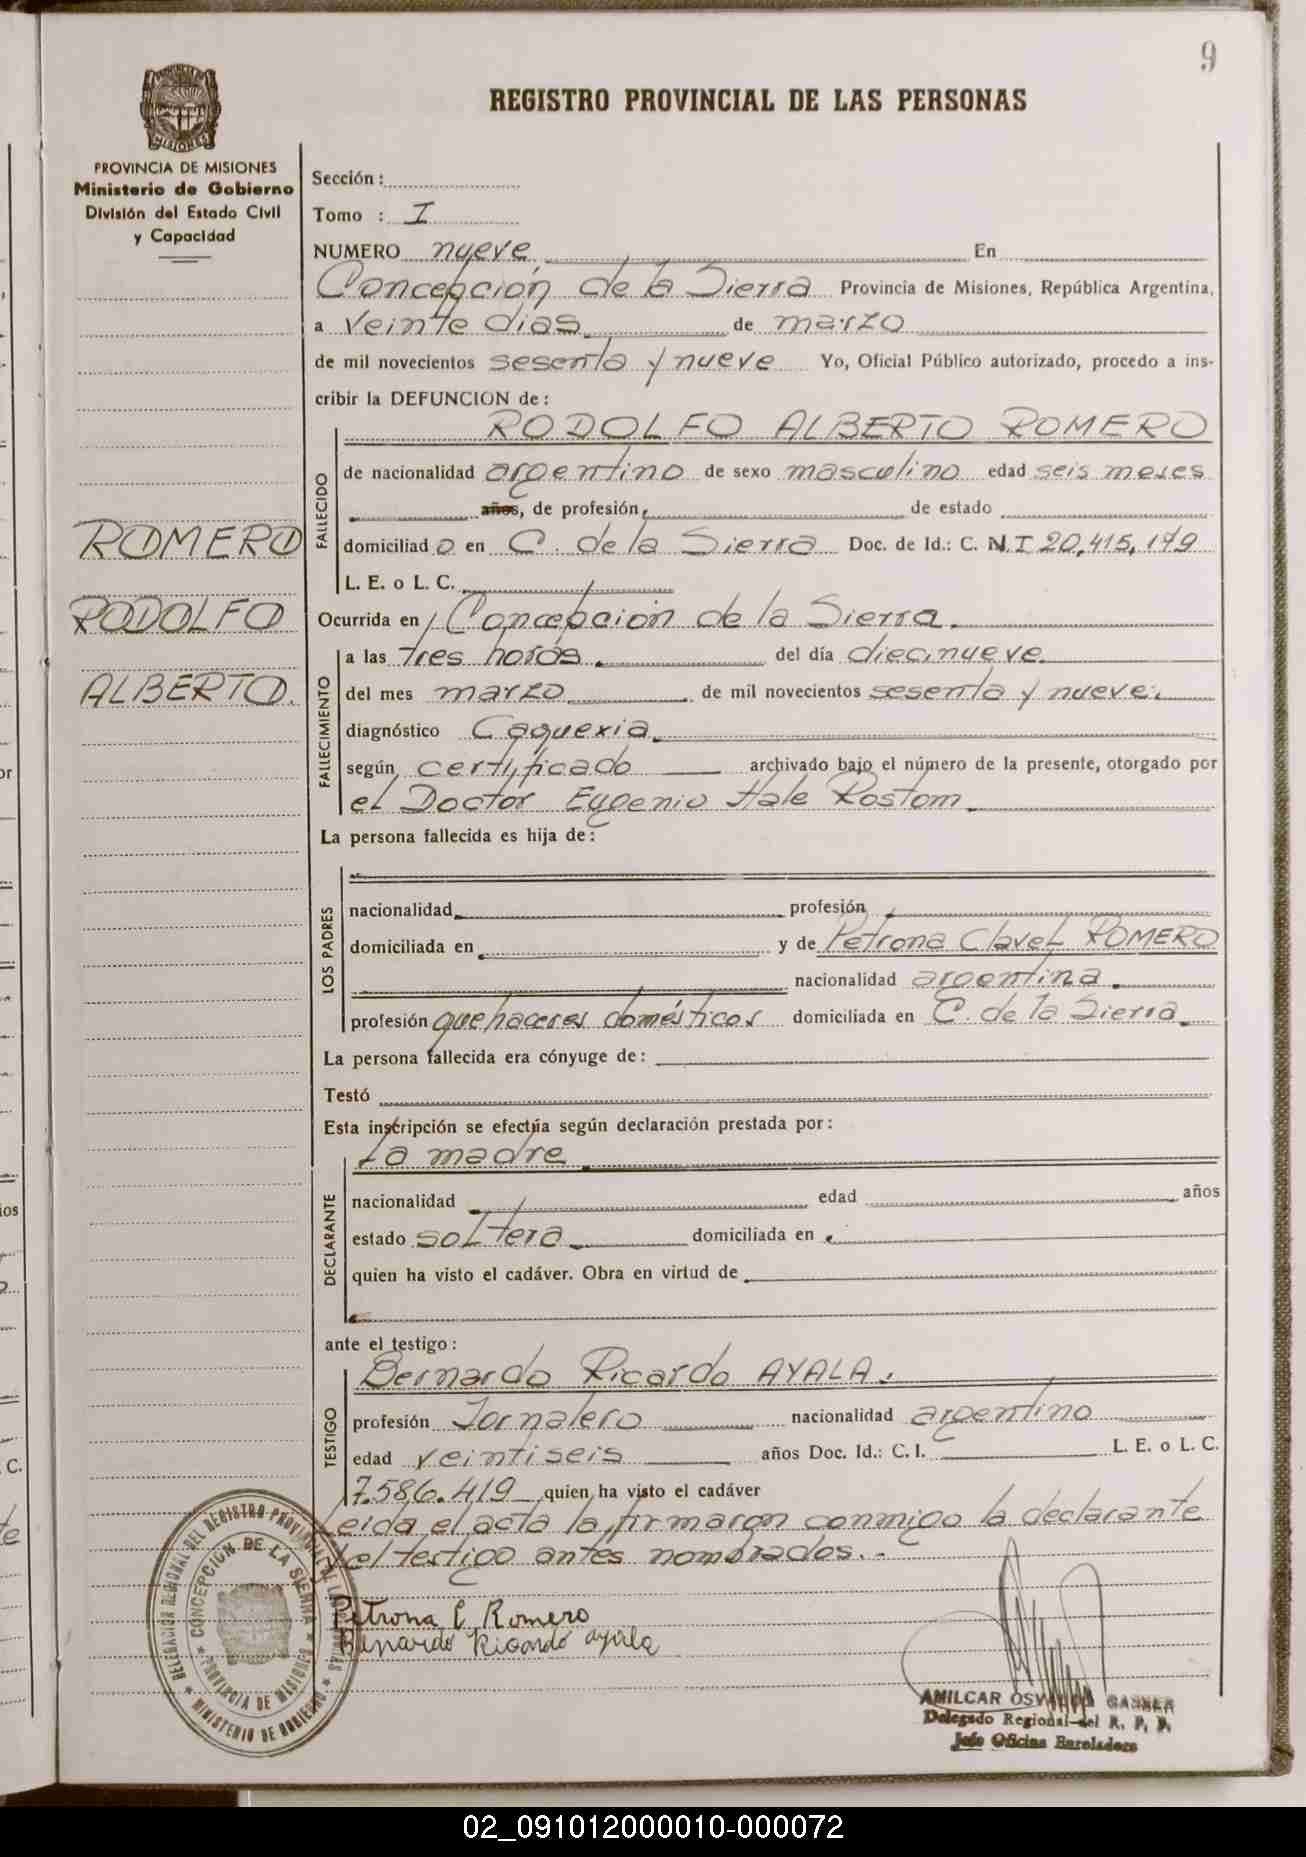 9
REGISTRO PROVINCIAL DE LAS PERSONAS
PROVINCIA DE MISIONES
Ministerio de Gobierno
División del Estado Civil
y Capacidad
ROMERO
RODOLFO
ALBERTO.
Sección:
Tomo : I
NUMERO nueve En
Concepción de la Sierra Provincia de Misiones, República Argentina,
a veinte dias de marzo
de mil novecientos sesenta y nueve Yo, Oficial Público autorizado, procedo a ins-
cribir la DEFUNCION de:
RODOLFO ALBERTO ROMERO
FALLECIDO
de nacionalidad argentino de sexo masculino edad seis meses
años, de profesión, de estado
domiciliado en C. de la Sierra Doc. de Id.: C. N.I 20.415.179
L. E. o L. C.
Ocurrida en Concepción de la Sierra.
FALLECIMIENTO
a las tres horas. del día diecinueve
del mes marzo. de mil novecientos sesenta y nueve.
diagnóstico Caquexia.
según certificado archivado bajo el número de la presente, otorgado por
el Doctor Eugenio Hale Rostom.
La persona fallecida es hija de:
LOS PADRES
nacionalidad profesión
domiciliada en y de Petrona Clavel ROMERO
nacionalidad argentina.
profesión quehaceres domésticos domiciliada en C. de la Sierra.
La persona fallecida era cónyuge de:
Testó
Esta inscripción se efectúa según declaración prestada por:
La madre
DECLARANTE
nacionalidad edad años
estado soltera domiciliada en
quien ha visto el cadáver. Obra en virtud de
ante el testigo:
Bernardo Ricardo AYALA.
TESTIGO
profesión Jornalero nacionalidad argentino
edad veintiseis años Doc. Id.: C. I. L. E. o L. C.
7.586.419 quien ha visto el cadáver
Leida el acta la firmaron conmigo la declarante
y el testigo antes nombrados.-
Petrona C Romero
Bernardo Ricardo ayala
DELEGACION REGIONAL DEL REGISTRO PROVINCIAL DE LAS PERSONAS
MINISTERIO DE GOBIERNO
CONCEPCION DE LA SIERRA
PROVINCIA DE MISIONES
AMILCAR OSWALDO
Delegado Regional del R. P. P.
Jefe Oficina
02_091012000010-000072